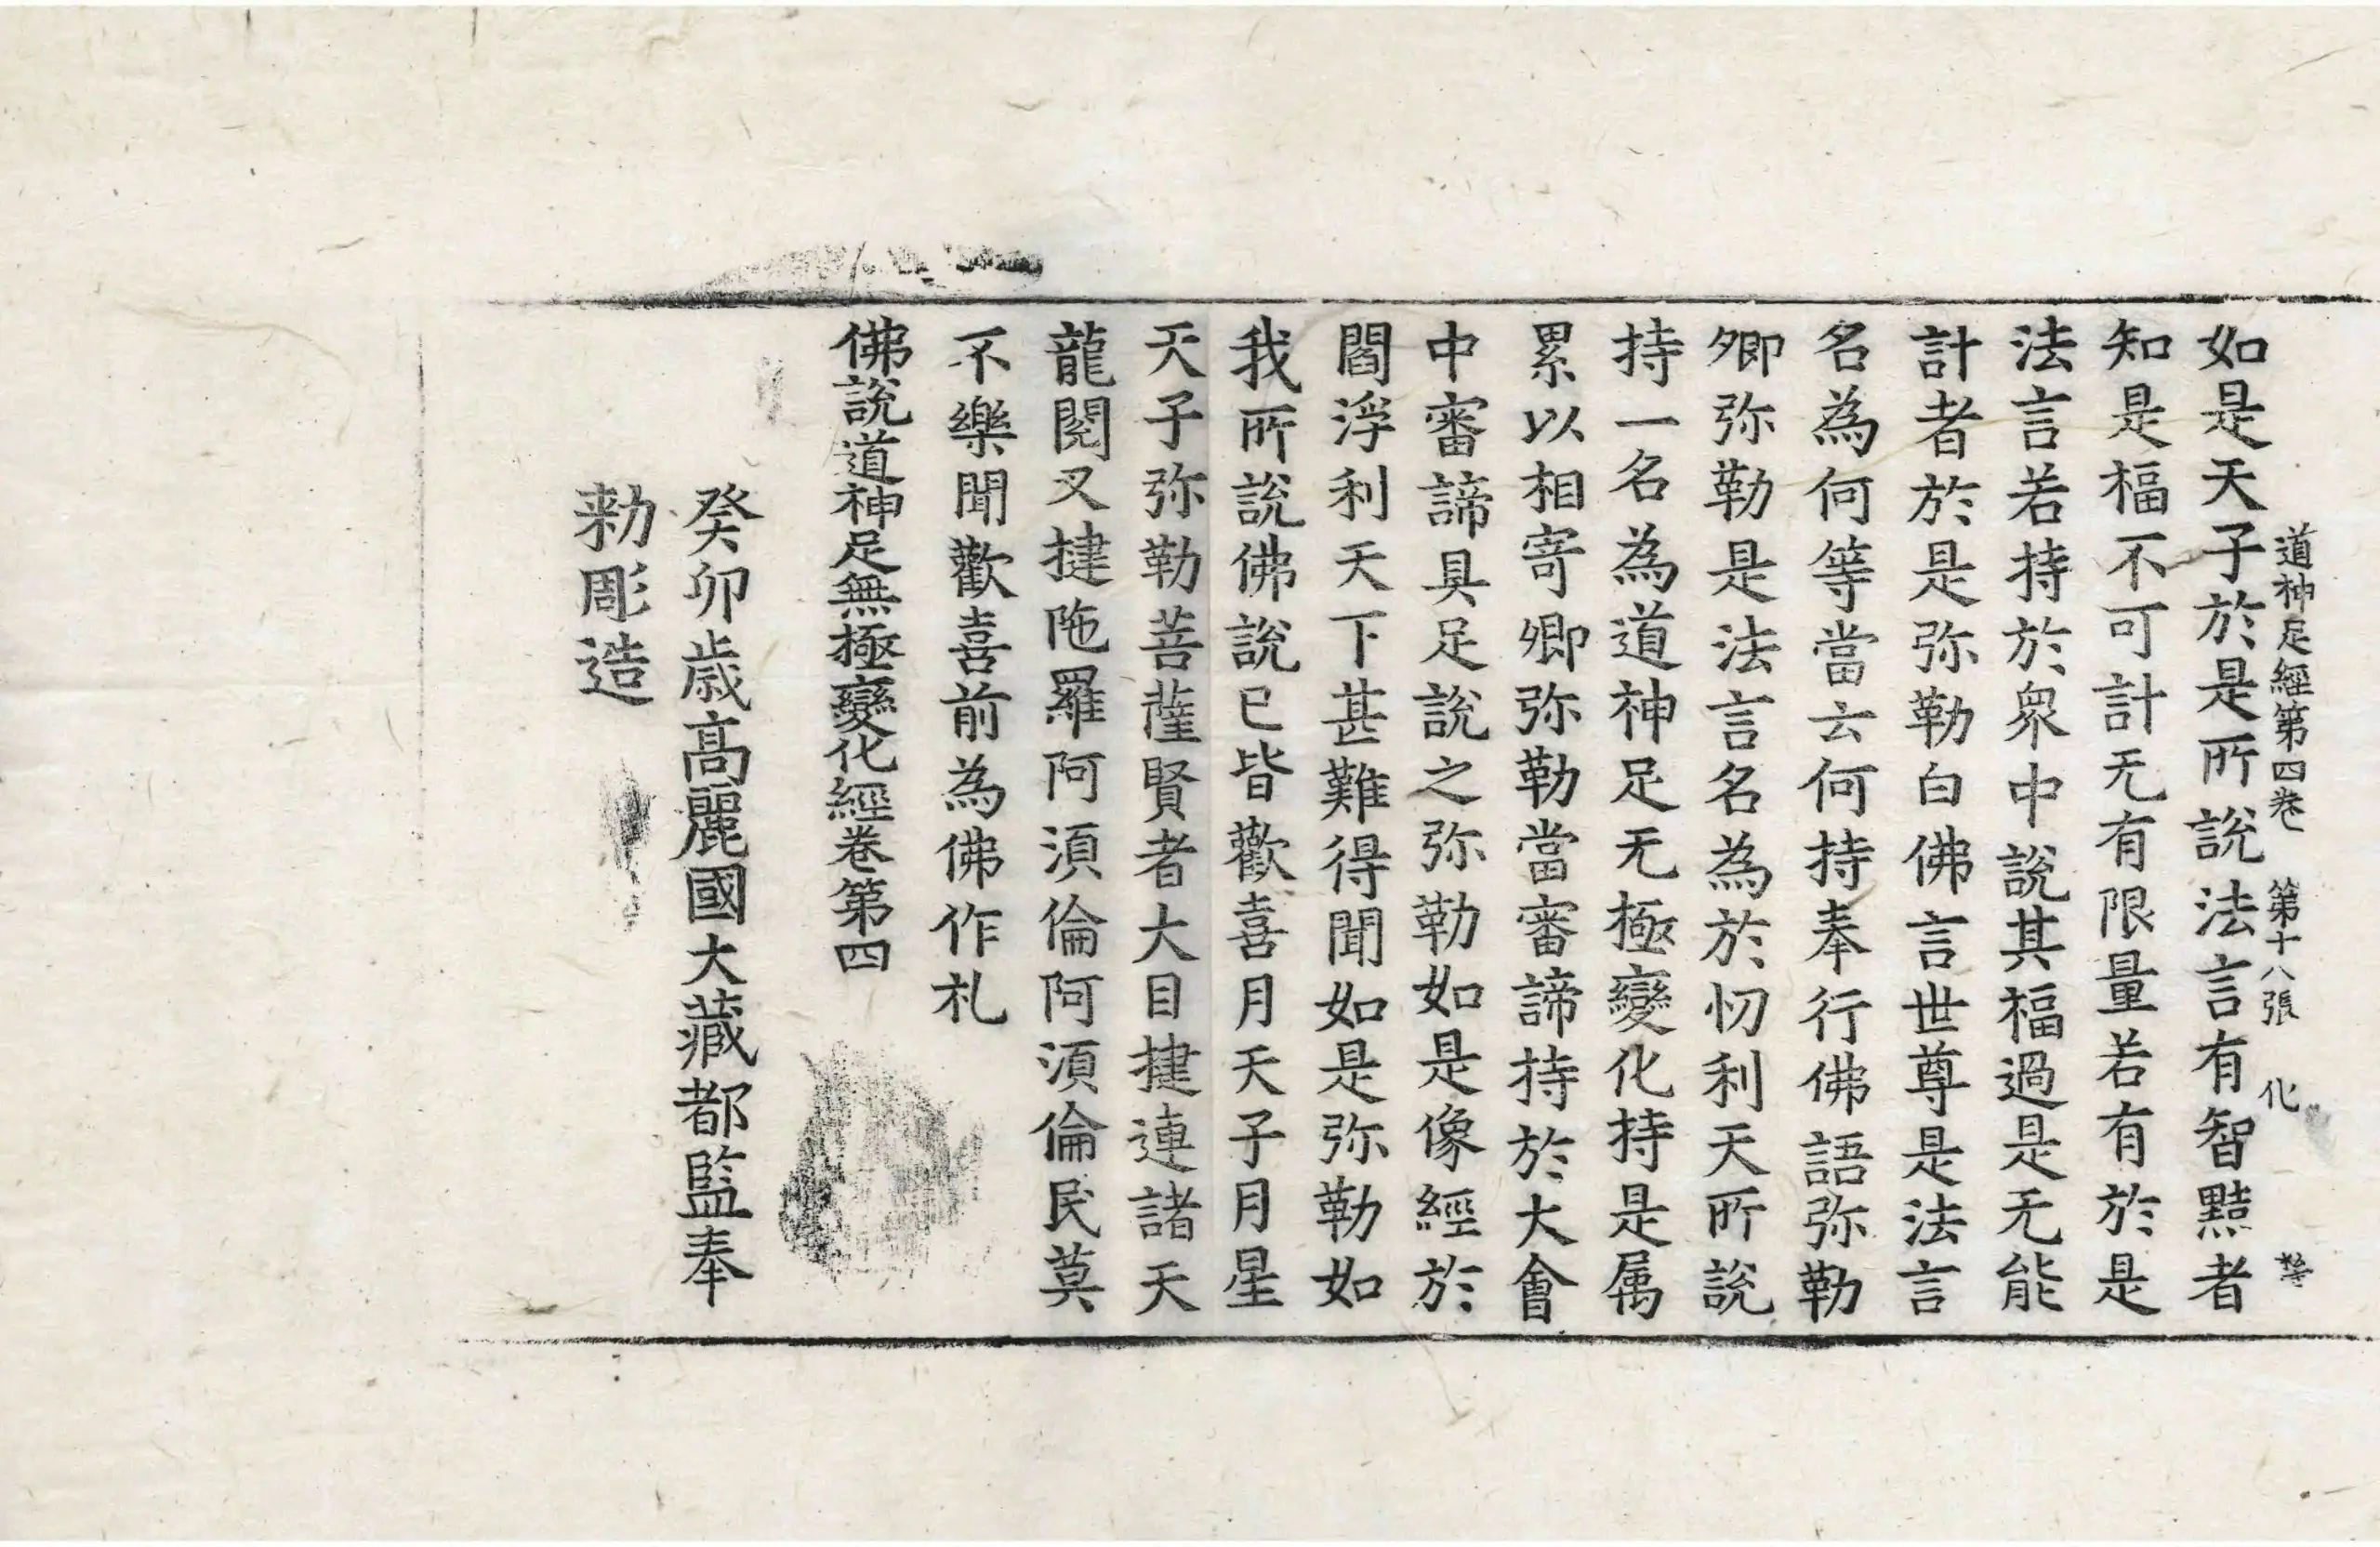 道神足經第四卷 第十八張 化
如是天子於是所說法言有智黠者
知是福不可計无有限量若有於是
法言若持於衆中說其福過是无能
計者於是弥勒白佛言世尊是法言
名為何等當云何持奉行佛語弥勒
卿弥勒是法言名為於忉利天所說
持一名為道神足无極變化持是属
累以相寄卿弥勒當審諦持於大會
中審諦具足說之弥勒如是像經於
閻浮利天下甚難得聞如是弥勒如
我所說佛說已皆歡喜月天子月星
天子弥勒菩薩賢者大目揵連諸天
龍閱叉揵陁羅阿須倫阿須倫民莫
不樂聞歡喜前為佛作礼
佛說道神足無極變化經卷第四
癸卯歳髙麗國大藏都監奉
勑彫造